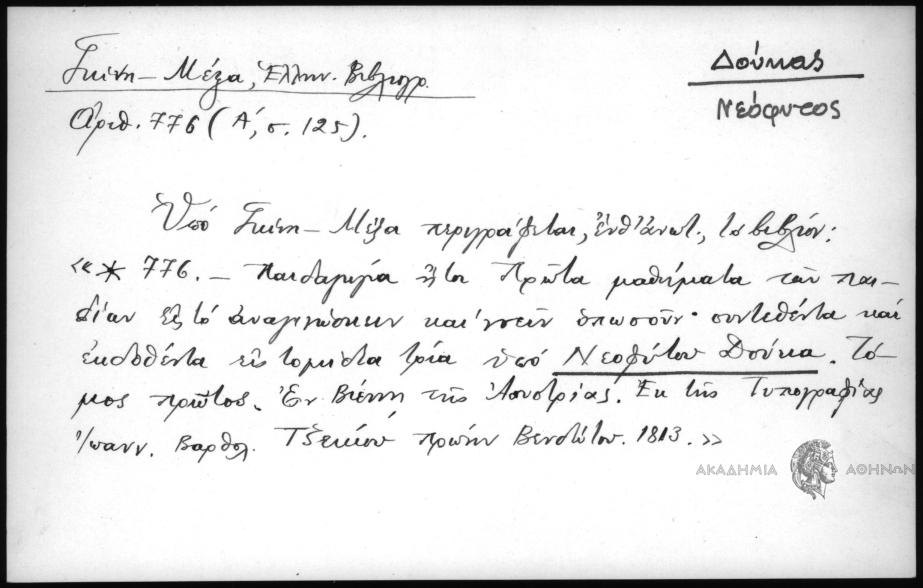 Γκίνη – Μέξα, Ἑλλην. Βιβλιογρ.
Ἀριθ. 776 (Α΄, σ. 125).
Δούκας
Νεόφυτος
Ὑπό Γκίνη – Μέξα περιγράφεται, ἔνθ' ἀνωτ., τὸ βιβλίον:
«* 776. – Παιδαγωγία ἤτοι Πρῶτα μαθήματα τῶν παι-
δίων εἰς τό ἀναγινώσκειν καί νοεῖν ὁπωσοῦν· συντεθέντα καί
ἐκδοθέντα εἰς τομίδια τρία ὑπό Νεοφύτου Δούκα. Τό-
μος πρῶτος. Ἐν Βιέννῃ τῆς Ἀουστρίας. Ἐκ τῆς Τυπογραφίας
Ἰωανν. Βαρθολ. Τζεκίου πρώην Βενδότου. 1813.»
ΑΚΑΔΗΜΙΑ ΑΘΗΝΩΝ